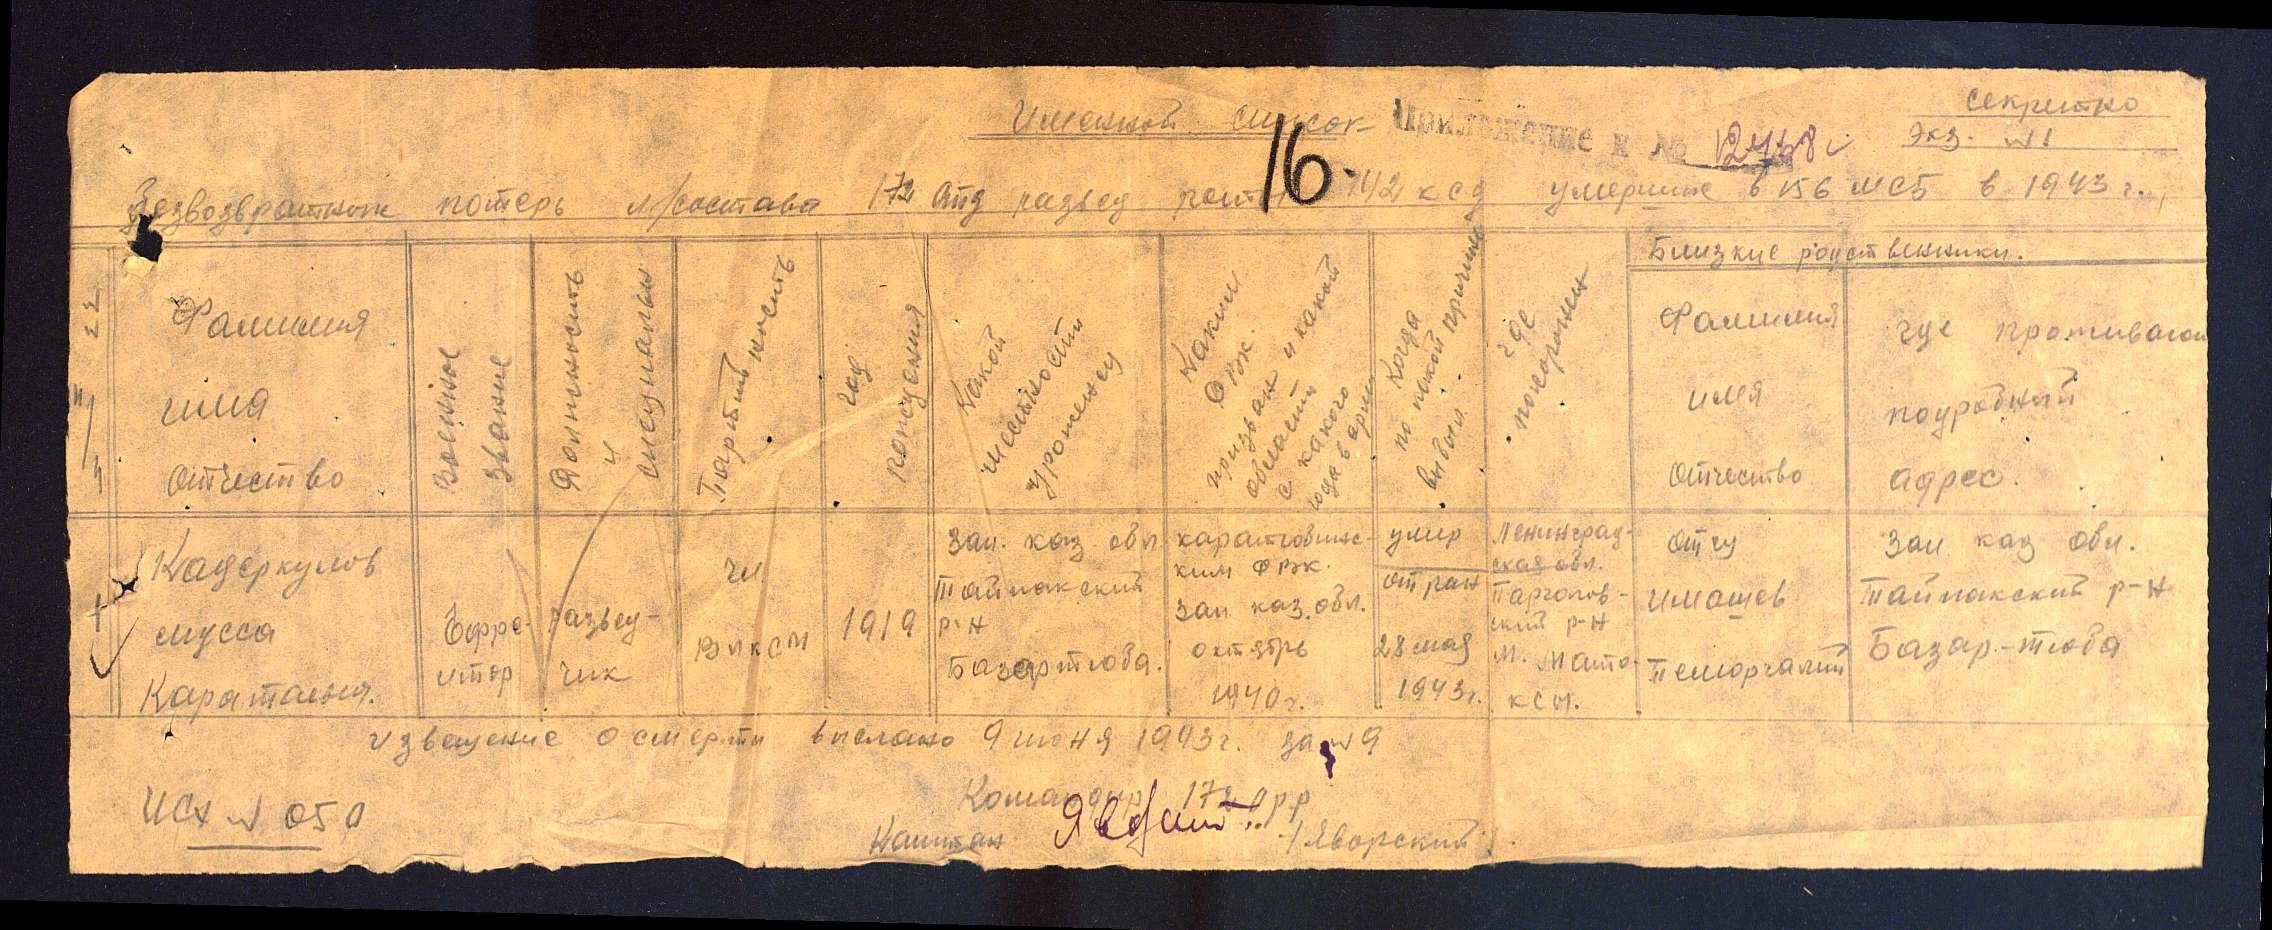 Секретно
Экз. №1
Именной список
Приложение к № 12468с
16.
Безвозвратных потерь л/состава 172 отд развед роты 142 ксд умерших в 156 МСБ в 1943 г.
№ п/п
Фамилия
имя
отчество
Военное
звание
Должность
и
специальн
Партийность
год
рождения
Какой
местности
уроженец
Каким
РВК
призван и какой
области
с какого
года в армии
Когда
по какой причине
выбыл
где
похоронен
Близкие родственники.
Фамилия
имя
отчество
где проживают
подробный
адрес.
Кадеркулов
мусса
Ефре-
итор
развед-
чик
чл.
ВЛКСМ
1919
Зап. каз. обл
Тайпакский
р-н
Базартюба.
каратюбинс-
ким РВК.
Зап. каз. обл.
октябрь
1940г.
умер
от ран
28 мая
1943г.
Ленинград-
ская обл.
Парголов-
ский р-н
М. Мато-
ксы.
отец
имашев
Зап каз обл.
Тайпакский р-н
Базар-тюба
извещение о смерти выслано 9 июня 1943г. за №9
Исх № 050
Командир 172 орр
Капитан
/Яворский/.